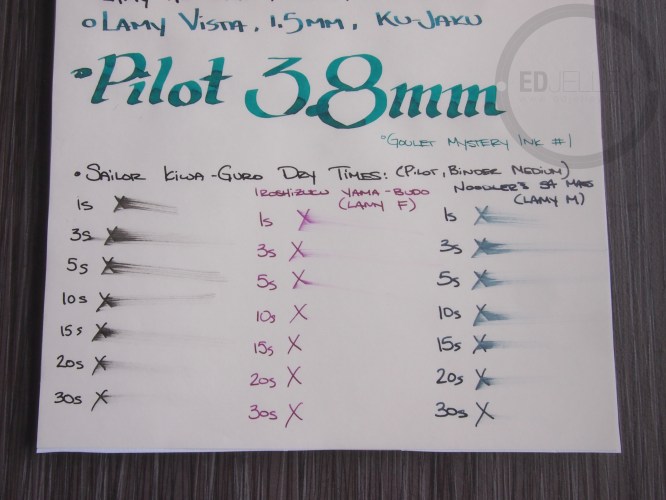 • Lamy Vista, 1.5mm, Ku-Jaku
• Pilot 3.8mm
• Goulet Mystery Ink #1
• Sailor Kiwa-Guro Dry Times: (Pilot, Binder Medium)
Iroshizuku Yama-Budo
(Lamy F)
Noodler's 54
(Lamy M)
1s 1s 1s
3s 3s 3s
5s 5s 5s
10s 10s 10s
15s 15s 15s
20s 20s 20s
30s 30s 30s
ED JELLEY